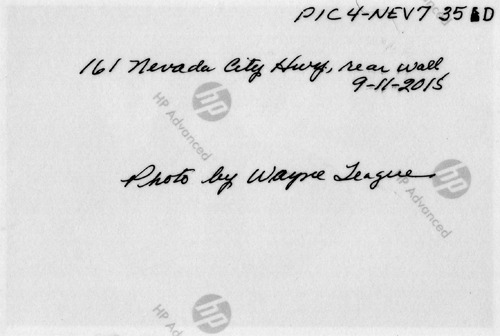 PIC4-NEV7 35 D
161 Nevada City Hwy, rear wall
9-11-2015
hp
HP Advanced
Photo by Wayne League
hp
HP Advanced
hp
HP Ad